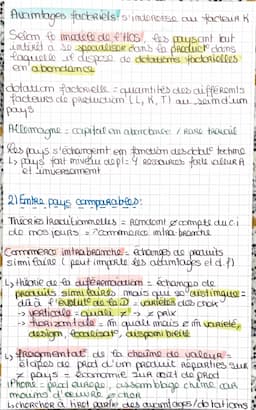 Avantages factoriels : s'intéresse au facteur K
Selon le modèle d'HOS, les pays ont tout
intérêt à se spécialiser dans la product° dans
laquelle il dispose de dotations factorielles
en abondance
dotation factorielle = quantités des différents
facteurs de production (L, K, T) au sein d'un
pays
Allemagne = capital en abondance / rare travail
Les pays s'échangent en fonction des dotat°
L, pays font
et inversement
2) Entre pays comparables :
Théories traditionnelles = compte du c.i
de nos jours = commerce intra-branche
Commerce intrabranche = échanges de produits
similaires (peut importe les avantages et d.f)
L, théorie de la différenciation = échanges de
produits similaires mais qui se distingue =
dû à évolut° de la D = variétés des choix
-> verticale = qualí ≠ -> ≠ prix
-> horizontale = m̂ qualí mais ≠ m̂ variété,
design, localisat°, disponibilité
L, fragmentat° de la chaîne de valeur =
étapes de prod d'un produit réparties sur
≠ pays = économie sur coût de prod
iPhone = assemblage chine car
moins d'œuvre - chor
L, chercher à tirer partie des avantages / dotations